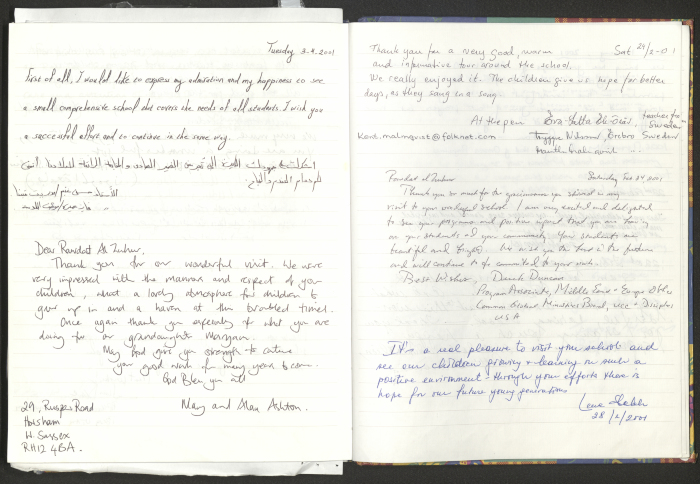 Tuesday 3-4-2001
First of all, I would like to express my admiration and my happiness to see
a small comprehensive school that covers the needs of all students. I wish you
a successful effort and to continue in the same way.
Dear Rawdat Al Zuhur,
Thank you for our wonderful visit. We were
very impressed with the manners and respect of your
children, what a lovely atmosphere for children to
grow up in and a haven at this troubled time.
Once again thank you especially for what you are
doing for our grandaughter Maryam.
May God give you strength to continue
your good work for many years to come.
God Bless you all
May and Alan Ashton.
29, Rusper Road
Horsham
W. Sussex
RH12 4BA.
Thank you for a very good, warm Sat 24/2-01
and informative tour around the school.
We really enjoyed it. The children give us hope for better
days, as they sang in a song.
At the pen teachers from Sweden
kard.malmquist@folknat.com Örebro Sweden
Rawdat al Zuhur Saturday Feb 24, 2001
Thank you so much for the graciousness you showed in my
visit to your wonderful school. I am very excited and delighted
to see your programs and positive impact that you are having
on your students and your community. Your students are
beautiful and bright. We wish you the best in the future
and will continue to be committed to your work.
Best Wishes, Derek Duncan
Program Associate, Middle East & Europe Office
Common Global Ministries Board, UCC & Disciples
USA
It's a real pleasure to visit your school and
see our children growing & learning in such a
positive environment - through your efforts there is
hope for our future young generations
28/2/2001